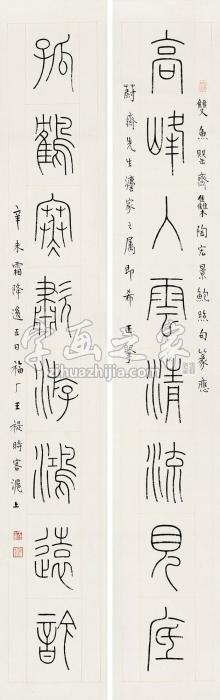 高峰入雲清流見底
雙魚罌齋集陶宏景鮑照句篆應
蔚齋先生灋家之屬即希
孤鶴寒歗游鴻遠訡
辛未霜降後五日福厂王禔時客滬上
字画之家
zihuazhijia.com